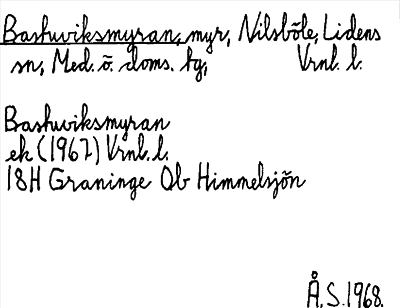 Bashuviksmyran, myr, Nilsböle, Lidens
sn, Med. ö. doms. tg, Vrnl. l.
Bashuviksmyran
ek (1967) Vrnl. l.
18H Graninge Ob Himmelsjön
Å. S. 1968.